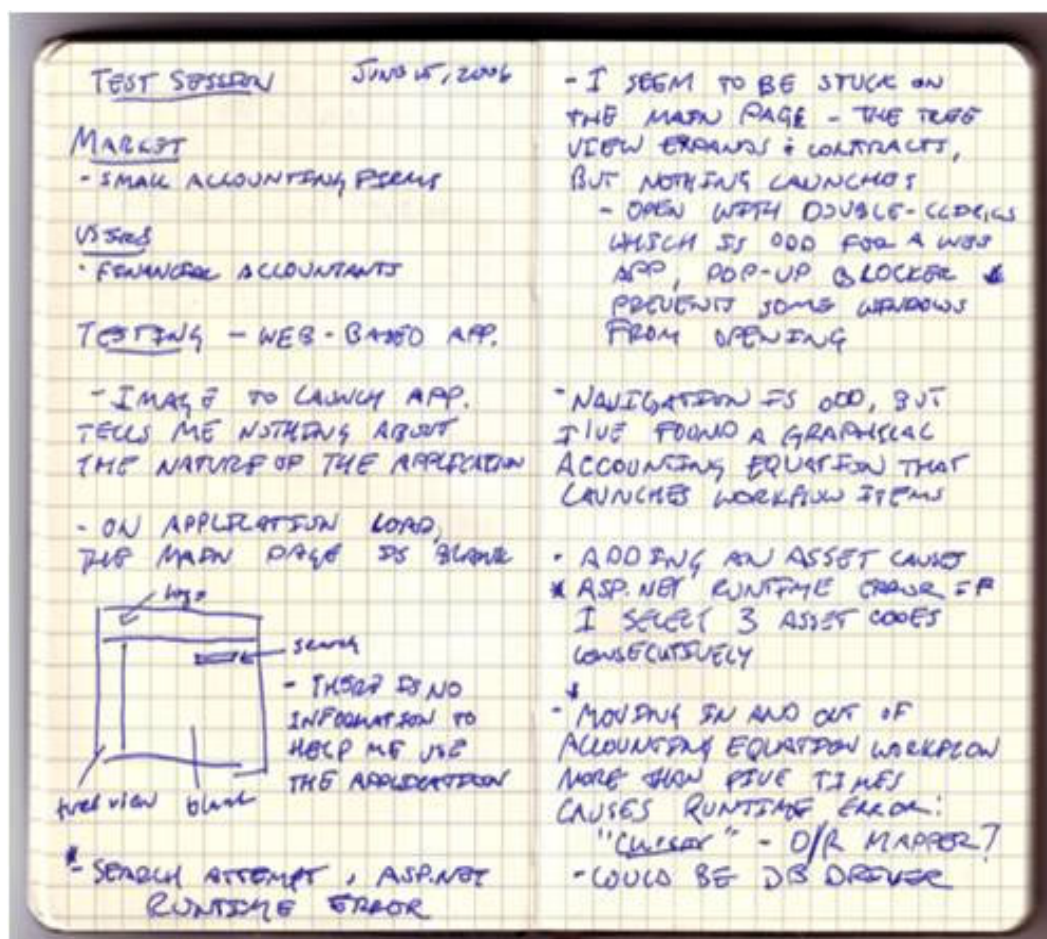 TEST SESSION JUNE 15, 2006
MARKET
- SMALL ACCOUNTING FIRMS
USERS
- FINANCIAL ACCOUNTANTS
TESTING - WEB-BASED APP.
- IMAGE TO LAUNCH APP.
TELLS ME NOTHING ABOUT
THE NATURE OF THE APPLICATION
- ON APPLICATION LOAD,
THE MAIN PAGE IS BLANK
logo
search
- THERE IS NO
INFORMATION TO
HELP ME USE
THE APPLICATION
tree view blank
* - SEARCH ATTEMPT, ASP.NET
RUNTIME ERROR
- I SEEM TO BE STUCK ON
THE MAIN PAGE - THE TREE
VIEW EXPANDS & CONTRACTS,
BUT NOTHING LAUNCHES
- OPEN WITH DOUBLE-CLICKS
WHICH IS ODD FOR A WEB
APP, POP-UP BLOCKER *
PREVENTS SOME WINDOWS
FROM OPENING
- NAVIGATION IS ODD, BUT
I'VE FOUND A GRAPHICAL
ACCOUNTING EQUATION THAT
LAUNCHES WORKFLOW ITEMS
- ADDING AN ASSET CAUSES
* ASP.NET RUNTIME ERROR IF
I SELECT 3 ASSET CODES
CONSECUTIVELY
* - MOVING IN AND OUT OF
ACCOUNTING EQUATION WORKFLOW
MORE THAN FIVE TIMES
CAUSES RUNTIME ERROR:
- O/R MAPPER?
- COULD BE DB DRIVER